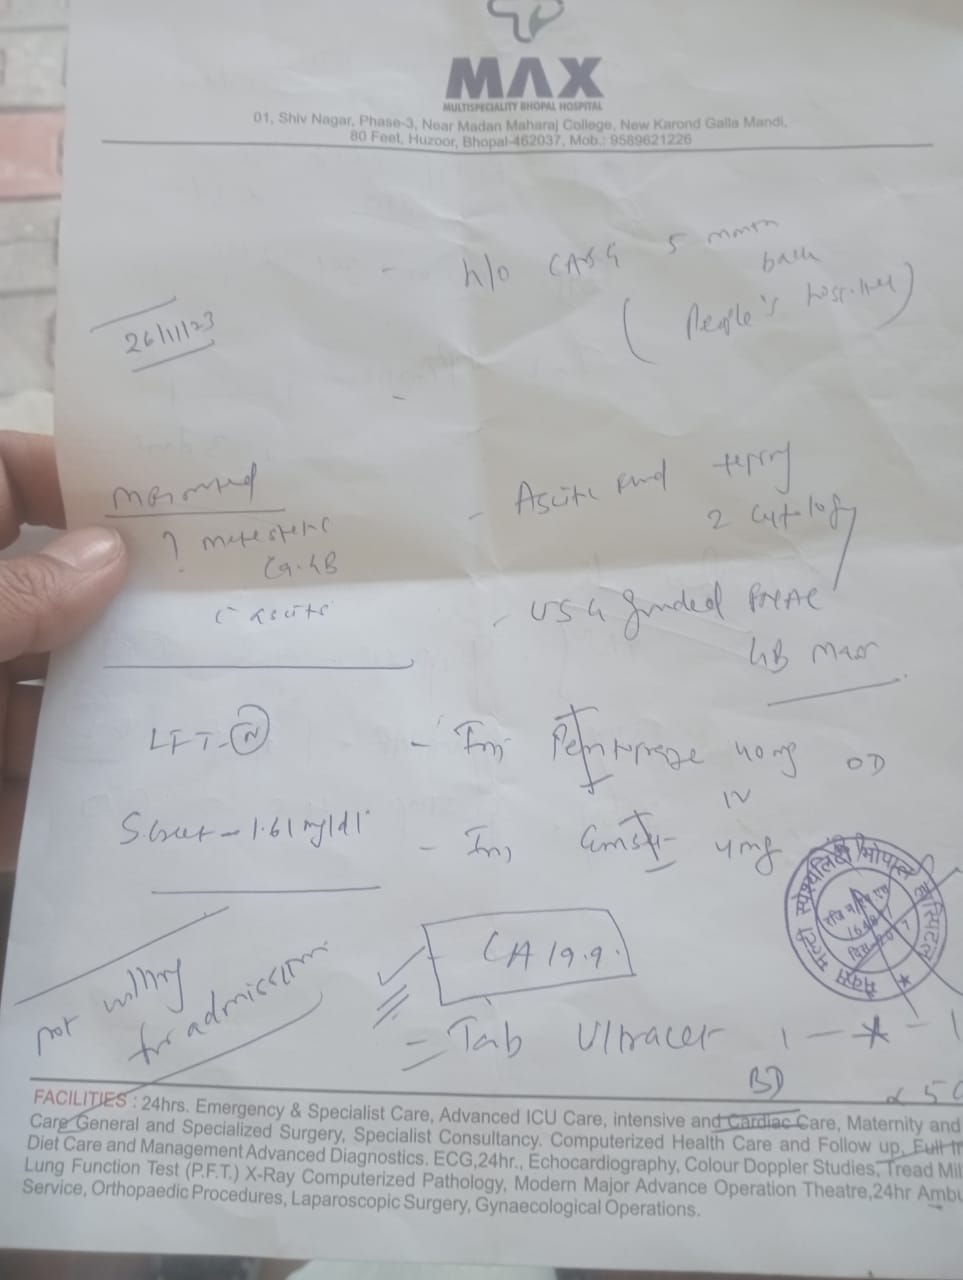 MAX
MULTISPECIALITY BHOPAL HOSPITAL
01, Shiv Nagar, Phase-3, Near Madan Maharaj College, New Karond Galla Mandi,
80 Feet, Huzoor, Bhopal-462037, Mob.: 9589621226
- h/o CABG 5 month
back
(People's hospital)
26/11/23
-
- Ascitic fluid
2 cytology
? metastatic
Ca. GB
c ascites
- USG guided FNAC
GB Mass
LFT - N
- Inj 40mg OD
IV
S. creat - 1.61 mg/dl
- Inj Emset 4mg
CA 19.9.
not willing
for admission
- Tab Ultracet 1 - * - 1
BD
x 5
मल्टी स्पेश्यलिटी भोपाल हास्पिटल
FACILITIES : 24hrs. Emergency & Specialist Care, Advanced ICU Care, intensive and Cardiac Care, Maternity and
Care General and Specialized Surgery, Specialist Consultancy. Computerized Health Care and Follow up, Full
Diet Care and Management Advanced Diagnostics. ECG,24hr., Echocardiography, Colour Doppler Studies, Tread Mil
Lung Function Test (P.F.T.) X-Ray Computerized Pathology, Modern Major Advance Operation Theatre,24hr Ambu
Service, Orthopaedic Procedures, Laparoscopic Surgery, Gynaecological Operations.